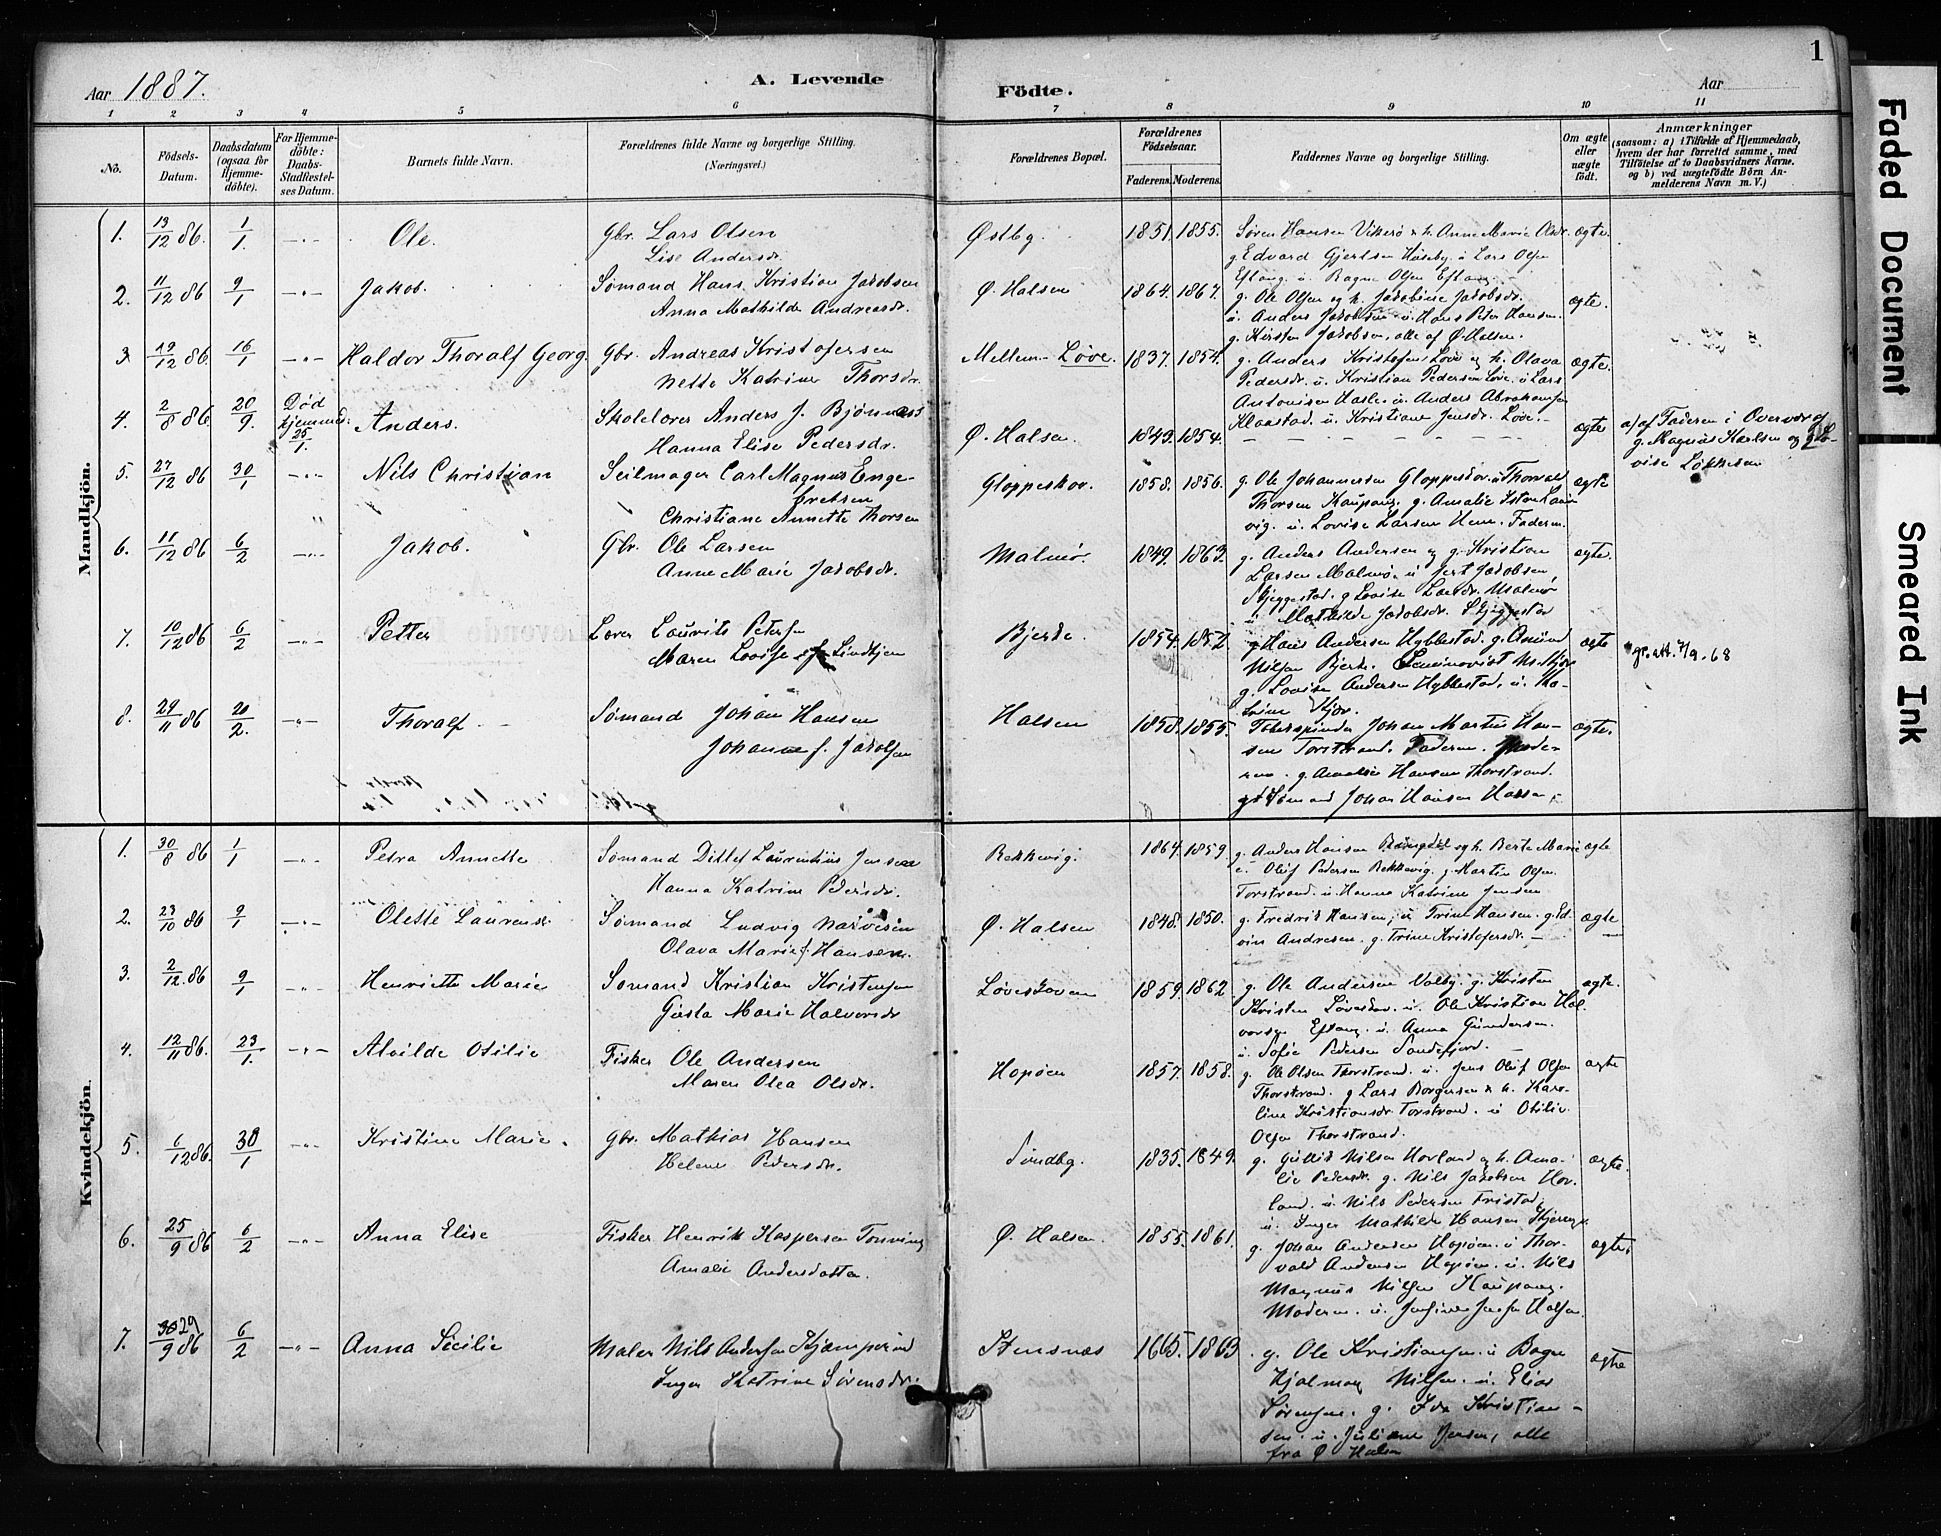 1
Aar 1887.
A. Levende
Fødte.
Aar
1 2 3 4 5 6 7 8 9 10 11
No.
Födsels-Datum.
Daabsdatum (ogsaa for Hjemme-döbte).
For Hjemme-döbte: Daabs-Stadfæstel-ses Datum.
Barnets fulde Navn.
Forældrenes fulde Navne og borgerlige Stilling. (Næringsvei.)
Forældrenes Bopæl.
Forældrenes Födselsaar.
Faderens. Moderens.
Faddernes Navne og borgerlige Stilling.
Om ægte eller uægte födt.
Anmærkninger
(saasom: a) i Tilfælde af Hjemmedaab, hvem der har forrettet samme, med Tilföielse af to Daabsvidners Navne. og b) ved uægtefödte Börn An-melderens Navn m. V.)
Mandkjön.
1. 13/12 86. 1/1 Ole. Gbr. Lars Olsen
Lise Andersdr.
Østby. 1851. 1855. Søren Hansen Vikerø & h. Anne Marie Olsdr. ægte.
g. Edvard Gjertsen Haseby. u Lars Olsen
Eftang. u. Olsen Eftang
2. 11/12 86 9/1 Jakob. Sømand Hans Kristian Jakobsen
Anna Mathilde Andreasdr.
Ø. Halsen 1864. 1867. g. Ole Olsen og h. Jakobine Jakobsdr. ægte.
u. Anders Jakobsen u. Hans Peter Hansen.
g. Kirsten Jakobsen, alle af Ø. Halsen.
3. 19/12 86. 16/1 Haldor Thoralf Georg. Gbr. Andreas Kristofersen
Nette Katrine Thorsdr.
Mellem-Løve. 1837. 1854. g. Anders Kristofersen Løve og h. Olava ægte.
Pedersdr. u. Kristian Pedersen Løve. u Lars
Antonisen Hasle. u Anders Abrahamsen
Klaastad. u. Kristiane Jensdr. Løve.
4. 2/8 86. 20/9. Død hjemmed. 25/1. Anders. Skolelærer Anders J. Bjønnes
Hanna Elise Pedersdr.
Ø. Halsen. 1849. 1854. ægte a/ af Faderen i Overvær af
g. Magnus Karlsen og g. Lo-
vise Løkkesen
5. 27/12 86 30/1 Nils Christian Seilmager Carl Magnus Enge-
bretsen
Christiane Annette Thorsen
Gloppeskov. 1858. 1856. g. Ole Johannessen Gloppeskov. u Thorvald ægte
Thorsen Kaupang. g. Amalie
vig. u. Lovise Larsen Hem. Faderen.
6. 11/12 86 6/2 Jakob. Gbr. Ole Larsen
Anne Marie Jakobsdr.
Malmø. 1849. 1863. g. Anders Andersen og g. Kristian ægte.
Larsen Malmø. u Gert Jakobsen
Skjeggestad. g Lovise Larsdr. Malmø
u Mathilde Jakobsdr. Skjeggestad
7. 10/12 86 6/2 Petter Lærer Laurits Petersen
Maren Lovise f. Lindhjem
Bjerke. 1854. 1852. g Hans Andersen Hybbestad. g. Amund ægte gr. att. 7/9. 68
Nilsen Bjerke.
g. Lovise Andersen Hybbestad. u. Tho-
8. 29/11 86 20/2. Thoralf. Sømand Johan Hansen
Johanne f. Jakobsen
Halsen 1858. 1855. Johan Martin Han- ægte.
sen Torstrand. Faderen. Mode-
ren. g. Amalie Hansen Thorstrand.
Sømand Johan Hansen Halsen.
Kvindekjön.
1. 30/8 86 1/1 Petra Annette Sømand Ditlef Laurentius Jensen
Hanna Katrine Pedersdr.
Rekkevig. 1864. 1859. g. Anders Hansen og h. Berte Marie ægte
u. Oluf Pedersen Rekkevig. g. Martin Olsen
Torstrand. u. Hanna Katrine Jensen
2. 23/10 86 9/1 Olette Laurense Sømand Ludvig Narvesen
Olava Marie f. Hansen.
Ø. Halsen 1848. 1850. g. Fredrik Hansen, u Trine Hansen. g. Ed- ægte
vin Andresen. g. Trine Kristofersdr.
3. 2/12 86 9/1 Henriette Marie Sømand Kristian Kristensen
Gusta Marie Halvorsdr
Løveskoven 1859. 1862 g. Ole Andersen Valby. g. Kristen ægte.
Kristen Løveskov. u. Ole Kristian Hal-
vorsen Eftang. u. Anna Gundersen.
u. Sofie Pedersen Sandefjord.
4. 12/11 86. 23/1. Alvilde Otilie Fisker Ole Andersen
Maren Olea Olsdr.
Hopøen 1857. 1858. g. Ole Olsen Thorstrand. u. Jens Oluf Olsen ægte
Thorstrand. g Lars Borgersen & h. Karo-
line Kristiansdr Torstrand. u Otilie
Olsen Thorstrand.
5. 6/12 86. 30/1 Kristine Marie. Gbr. Mathias Hansen
Helene Pedersdr.
Sundby. 1835. 1849. g. Gullik Nilsen Hovland og h. Ama- ægte.
lie Pedersdr. g. Nils Jakobsen Hov-
land. u Nils Pedersen Fristad.
u. Inger Mathilde Hansen
6. 25/9 86 6/2 Anna Elise Fisker Henrik Kaspersen Tonning
Amalie Andersdatter.
Ø. Halsen. 1855. 1861. g. Johan Andersen Hopøen. u Thor- ægte.
vald Andersen Hopøen. u. Nils
Magnus Nilsen Kaupang.
Moderen. u. Josefine Jensen Halsen.
7. 30 29/9 86 6/2 Anna Sicilie Maler Nils Andersen Kjæmperud
Inger Katrine Sørensdr.
Stensnæs 1865. 1863. g. Ole Kristiansen u ægte
Hjalmar Nilsen. u. Elias
Sørensen. g. Ida Kristian-
sen. u. Juliane Jensen, alle
fra Ø Halsen
Faded Document
Smeared Ink